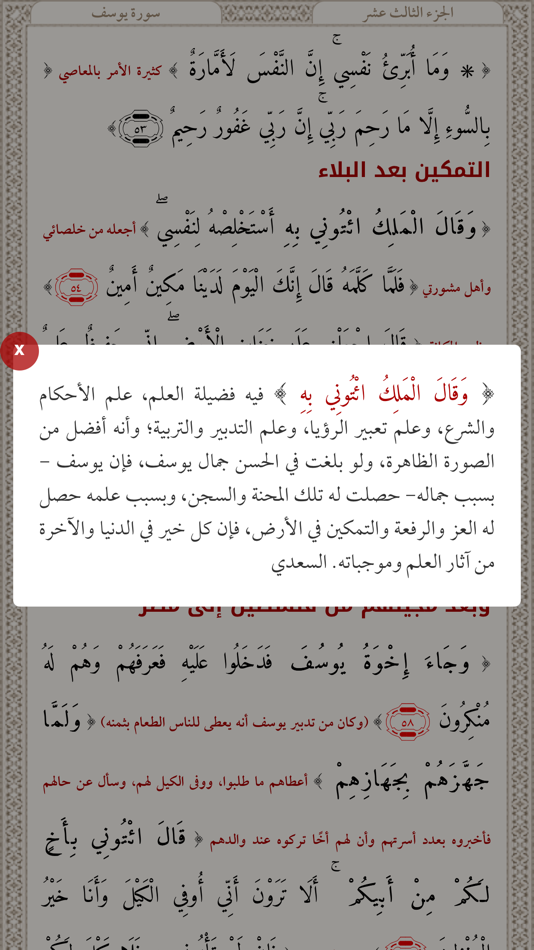 الجزء الثالث عشر
سورة يوسف
﴿ ۞ وَمَا أُبَرِّئُ نَفْسِي ۚ إِنَّ النَّفْسَ لَأَمَّارَةٌ ﴾ كثيرة الأمر بالمعاصي ﴿
بِالسُّوءِ إِلَّا مَا رَحِمَ رَبِّي ۚ إِنَّ رَبِّي غَفُورٌ رَحِيمٌ ٥٣ ﴾
التمكين بعد البلاء
﴿ وَقَالَ الْمَلِكُ ائْتُونِي بِهِ أَسْتَخْلِصْهُ لِنَفْسِي ۖ ﴾ أجعله من خلصائي
وأهل مشورتي ﴿ فَلَمَّا كَلَّمَهُ قَالَ إِنَّكَ الْيَوْمَ لَدَيْنَا مَكِينٌ أَمِينٌ ٥٤ ﴾
x
﴿ وَقَالَ الْمَلِكُ ائْتُونِي بِهِ ﴾ فيه فضيلة العلم، علم الأحكام
والشرع، وعلم تعبير الرؤيا، وعلم التدبير والتربية؛ وأنه أفضل من
الصورة الظاهرة، ولو بلغت في الحسن جمال يوسف، فإن يوسف –
بسبب جماله– حصلت له تلك المحنة والسجن، وبسبب علمه حصل
له العز والرفعة والتمكين في الأرض، فإن كل خير في الدنيا والآخرة
من آثار العلم وموجباته. السعدي
﴿ وَجَاءَ إِخْوَةُ يُوسُفَ فَدَخَلُوا عَلَيْهِ فَعَرَفَهُمْ وَهُمْ لَهُ
مُنْكِرُونَ ٥٨ ﴾ (وكان من تدبير يوسف أنه يعطى للناس الطعام بثمنه) ﴿ وَلَمَّا
جَهَّزَهُمْ بِجَهَازِهِمْ ﴾ أعطاهم ما طلبوا، ووفى الكيل لهم، وسأل عن حالهم
فأخبروه بعدد أسرتهم وأن لهم أخًا تركوه عند والدهم ﴿ قَالَ ائْتُونِي بِأَخٍ
لَكُمْ مِنْ أَبِيكُمْ ۚ أَلَا تَرَوْنَ أَنِّي أُوفِي الْكَيْلَ وَأَنَا خَيْرُ